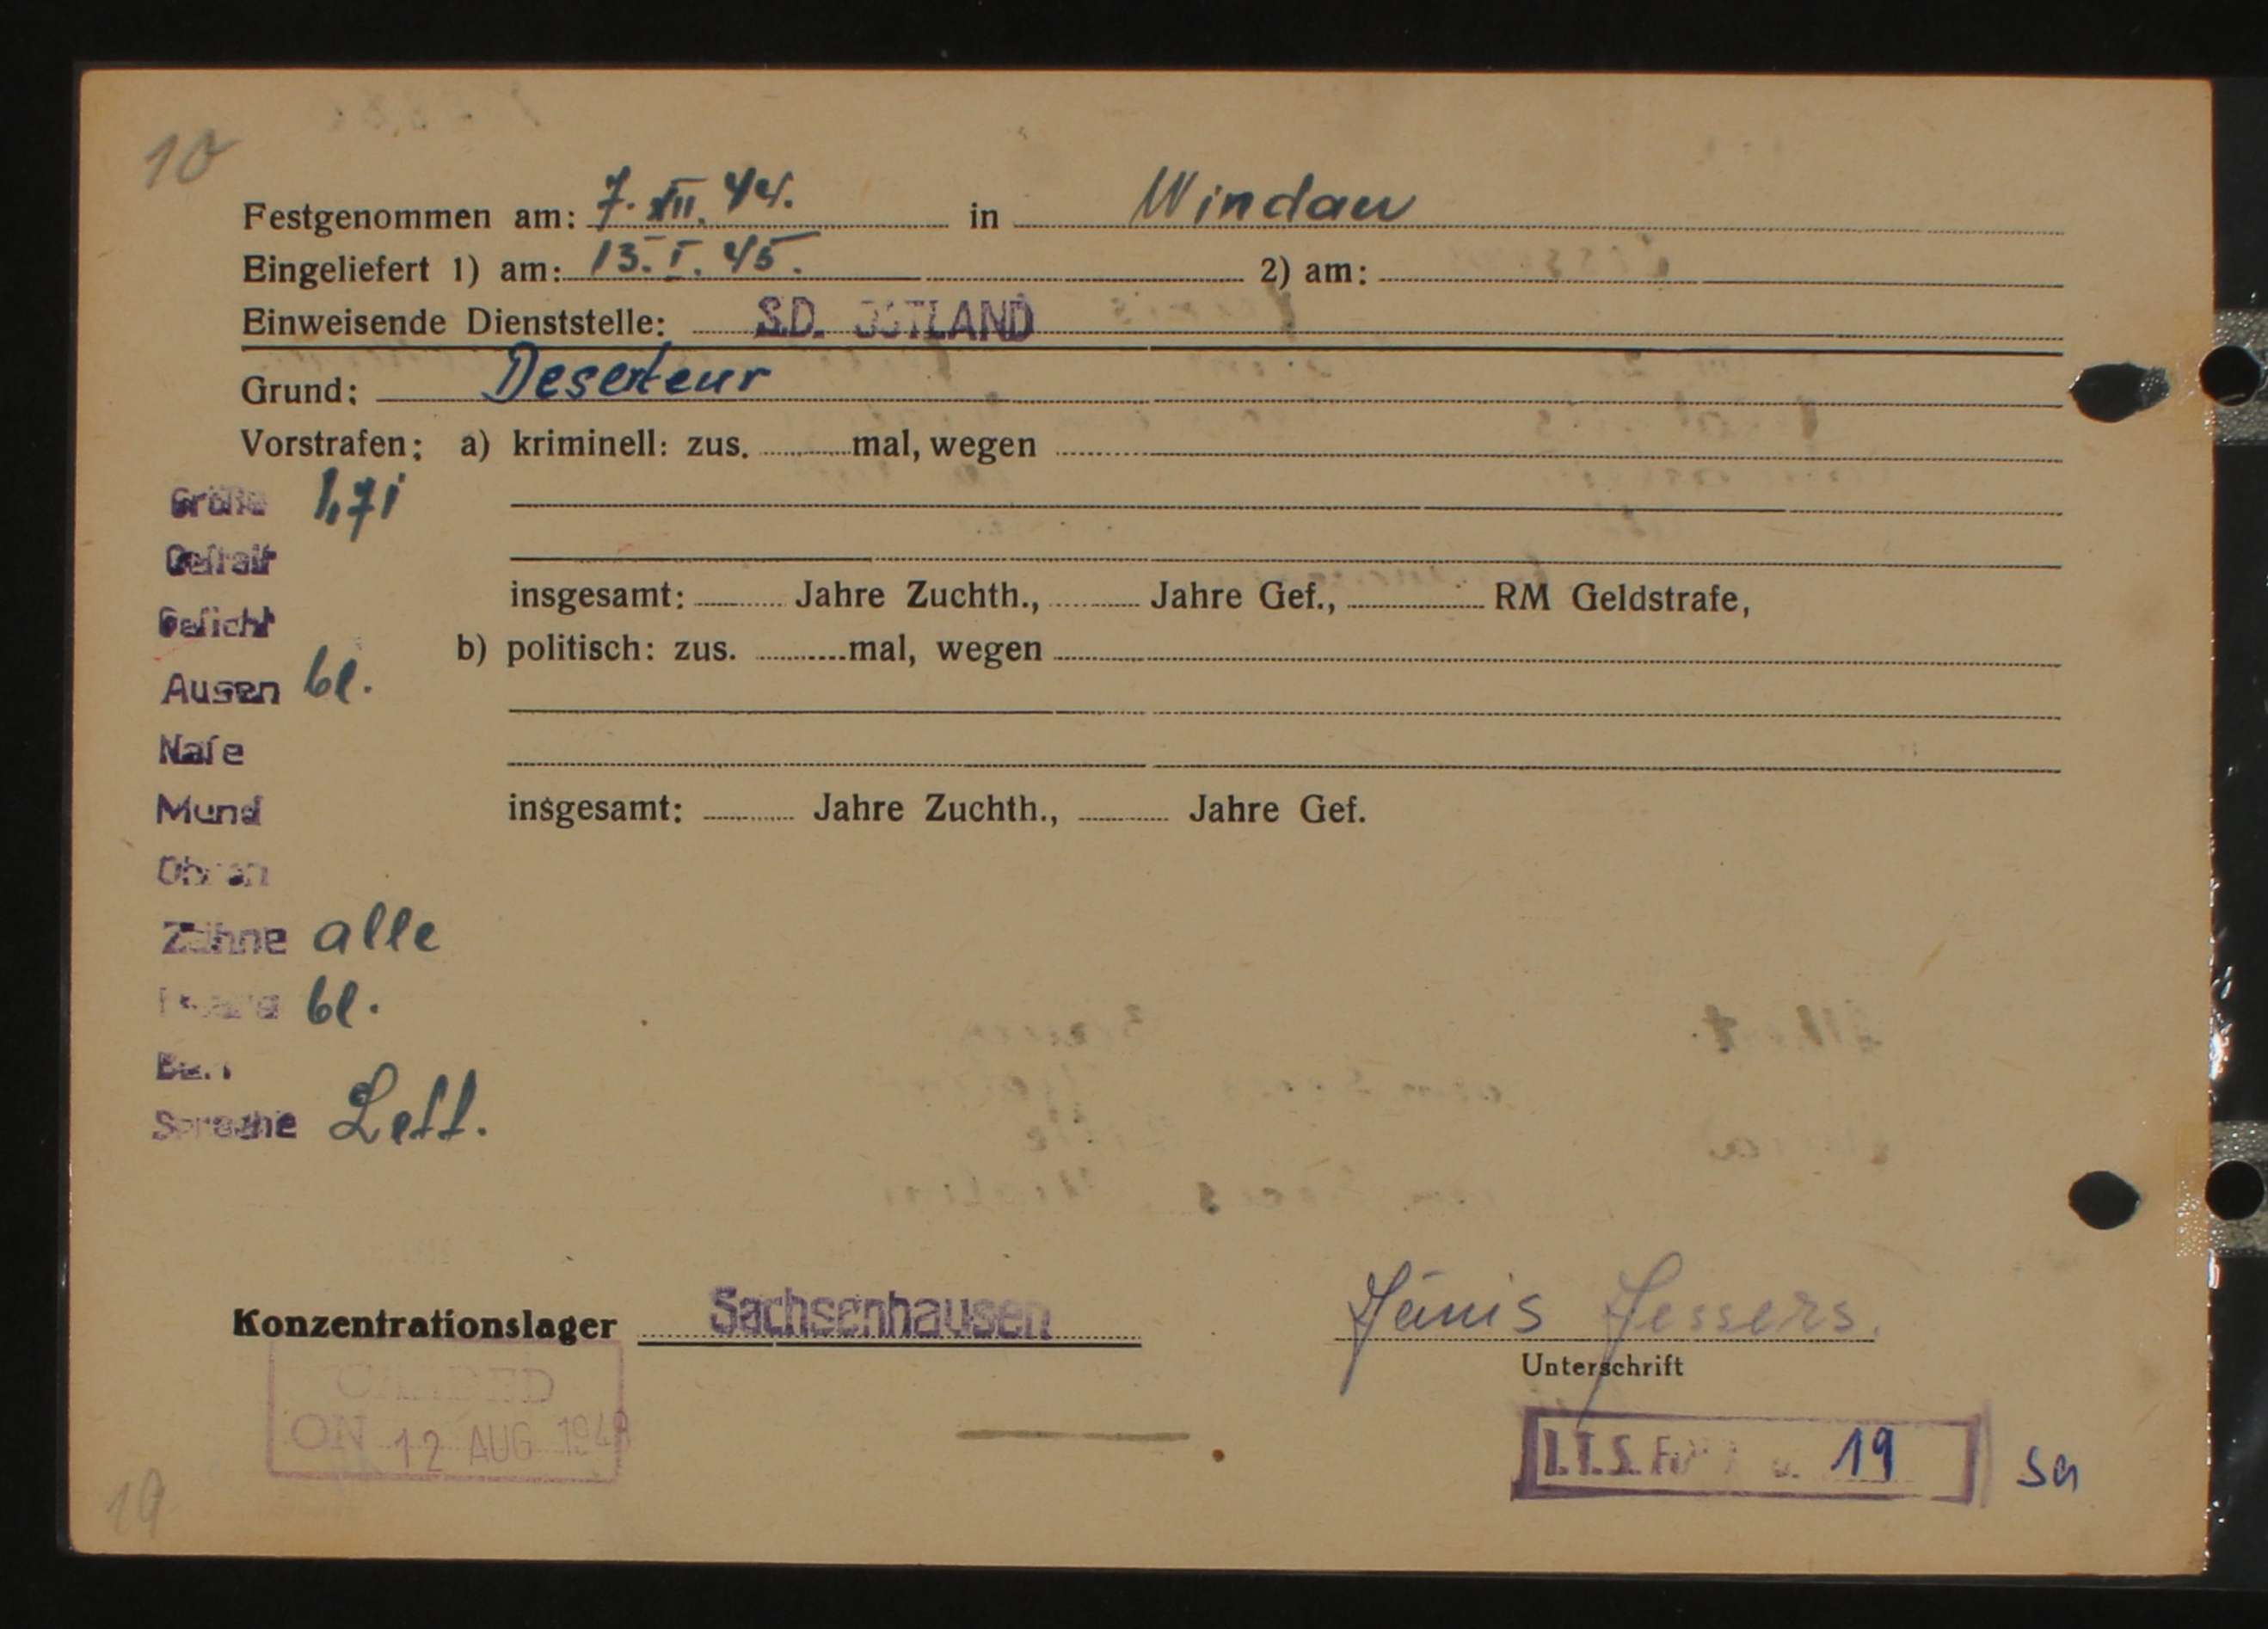 10
Festgenommen am: 7. XII. 44. in Windau
Eingeliefert 1) am: 13. I. 45. 2) am:
Einweisende Dienststelle: S.D. OSTLAND
Grund: Deserteur
Vorstrafen: a) kriminell: zus. mal, wegen
Größe 1,71
Gestalt
insgesamt: Jahre Zuchth., Jahre Gef., RM Geldstrafe,
Gesicht
b) politisch: zus. mal, wegen
Augen bl.
Nase
Mund
insgesamt: Jahre Zuchth., Jahre Gef.
Ohren
Zähne alle
bl.
Sprache Lett.
Konzentrationslager Sachsenhausen
Jānis Jessers.
Unterschrift
ON 12 AUG 1948
I.T.S. 19 Sa
19